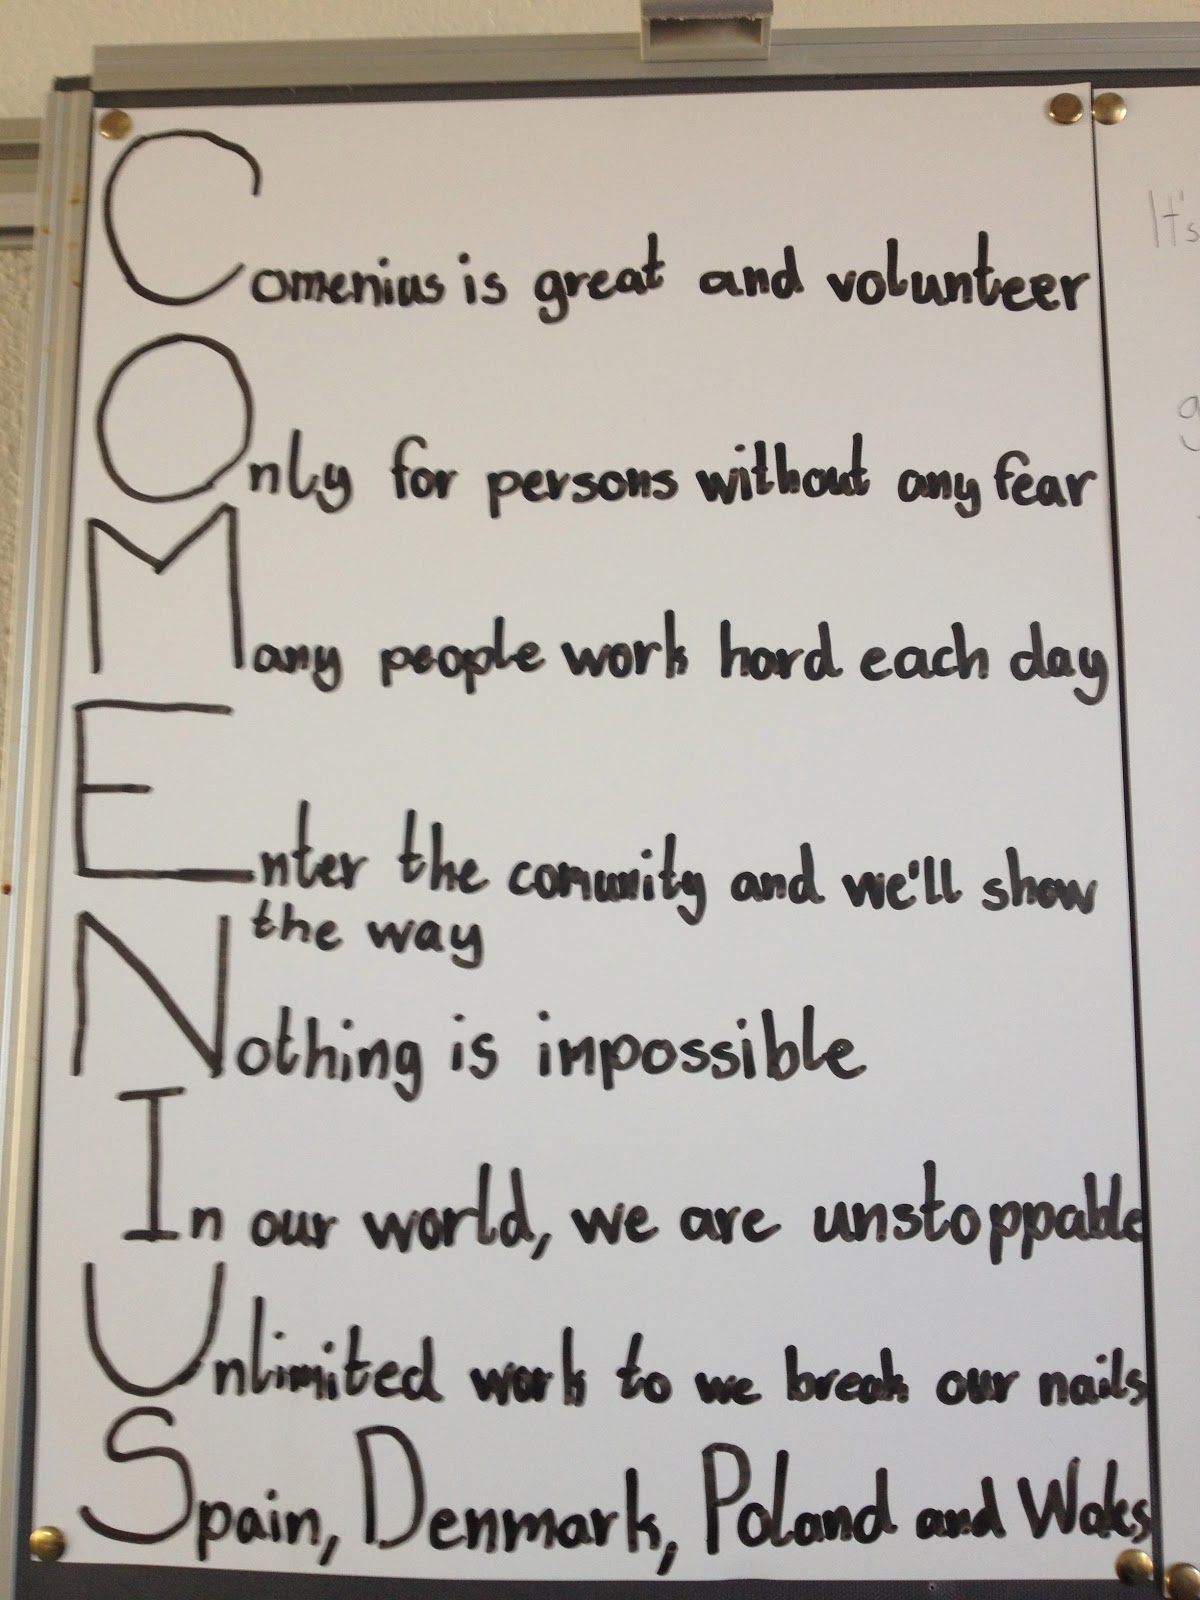 Comenius is great and volunteer
It's
Only for persons without any fear
Many people work hard each day
Enter the comunity and we'll show
the way
Nothing is impossible
In our world, we are unstoppable
Unlimited work to we break our nails
Spain, Denmark, Poland and Wales